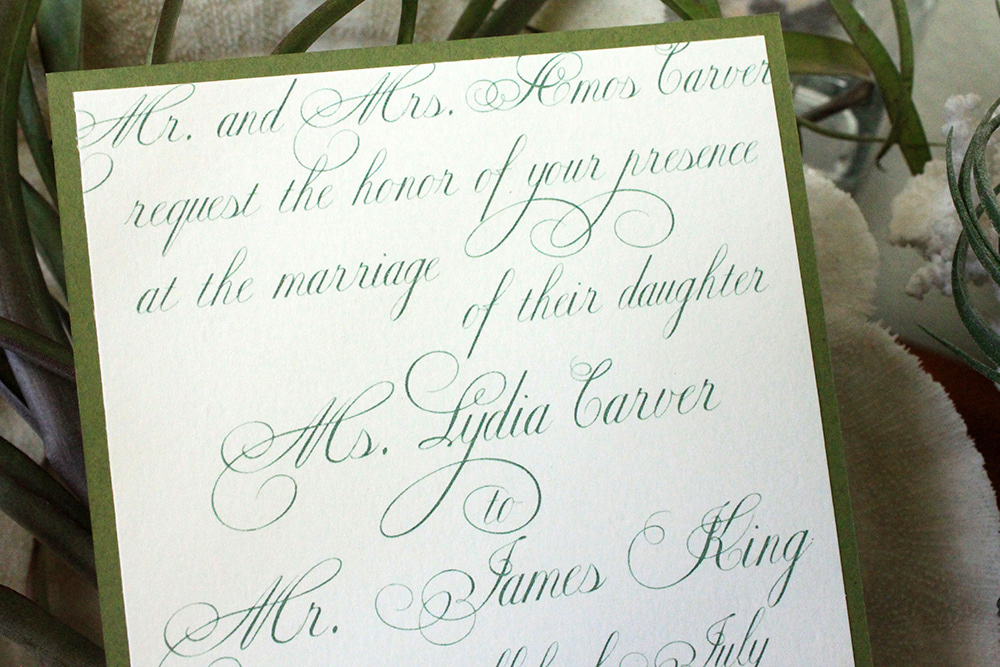 Mr. and Mrs. Amos Carver
request the honor of your presence
at the marriage
of their daughter
Ms. Lydia Carver
to
Mr. James King
July